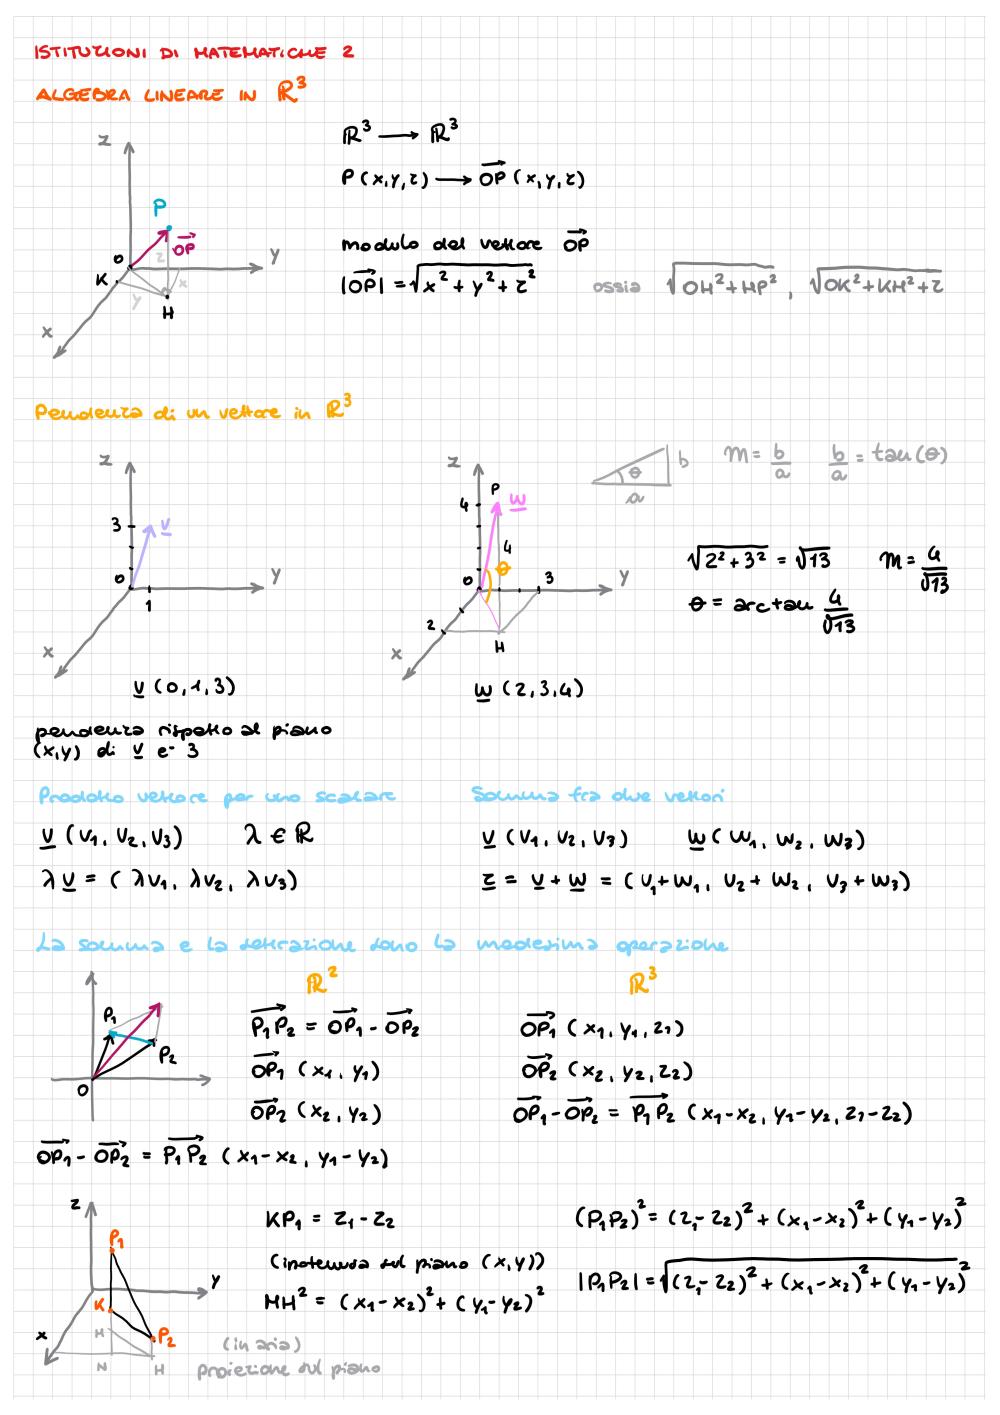 ISTITUZIONI DI MATEMATICHE 2
ALGEBRA LINEARE IN ℝ³
ℝ³ ⟶ ℝ³
P (x,y,z) ⟶ O͞P⃗ (x,y,z)
z
P
OP⃗
O
z
y
K
x
y
H
x
modulo del vettore OP⃗
|OP⃗| = √(x² + y² + z²)
ossia √(OH² + HP²) , √(OK² + KH² + z)
Pendenza di un vettore in ℝ³
z
3
v
O
1
y
x
v (0, 1, 3)
z
P
4
w
4
θ
O
3
y
2
H
x
w (2, 3, 4)
θ
b
a
m = b/a
b/a = tan(θ)
√(2² + 3²) = √13
m = 4/√13
θ = arctan 4/√13
pendenza rispetto al piano
(x,y) di v e- 3
Prodotto vettore per uno scalare
v (v₁, v₂, v₃) λ ∈ ℝ
λ v = ( λv₁, λv₂, λv₃)
Somma fra due vettori
v (v₁, v₂, v₃) w (w₁, w₂, w₃)
z = v + w = ( v₁+w₁, v₂+w₂, v₃+w₃)
La somma e la sottrazione sono la medesima operazione
P₁
P₂
O
ℝ²
P₁P₂⃗ = OP₁⃗ - OP₂⃗
OP₁⃗ (x₁, y₁)
OP₂⃗ (x₂, y₂)
ℝ³
OP₁⃗ (x₁, y₁, z₁)
OP₂⃗ (x₂, y₂, z₂)
OP₁⃗ - OP₂⃗ = P₁P₂⃗ (x₁-x₂, y₁-y₂, z₁-z₂)
OP₁⃗ - OP₂⃗ = P₁P₂⃗ (x₁-x₂, y₁-y₂)
z
P₁
y
K
x
P₂
H
N
H
KP₁ = z₁ - z₂
(ipotenusa sul piano (x,y))
HH² = (x₁-x₂)² + (y₁-y₂)²
(in aria)
proiezione sul piano
(P₁P₂)² = (z₁-z₂)² + (x₁-x₂)² + (y₁-y₂)²
|P₁P₂| = √((z₁-z₂)² + (x₁-x₂)² + (y₁-y₂)²)